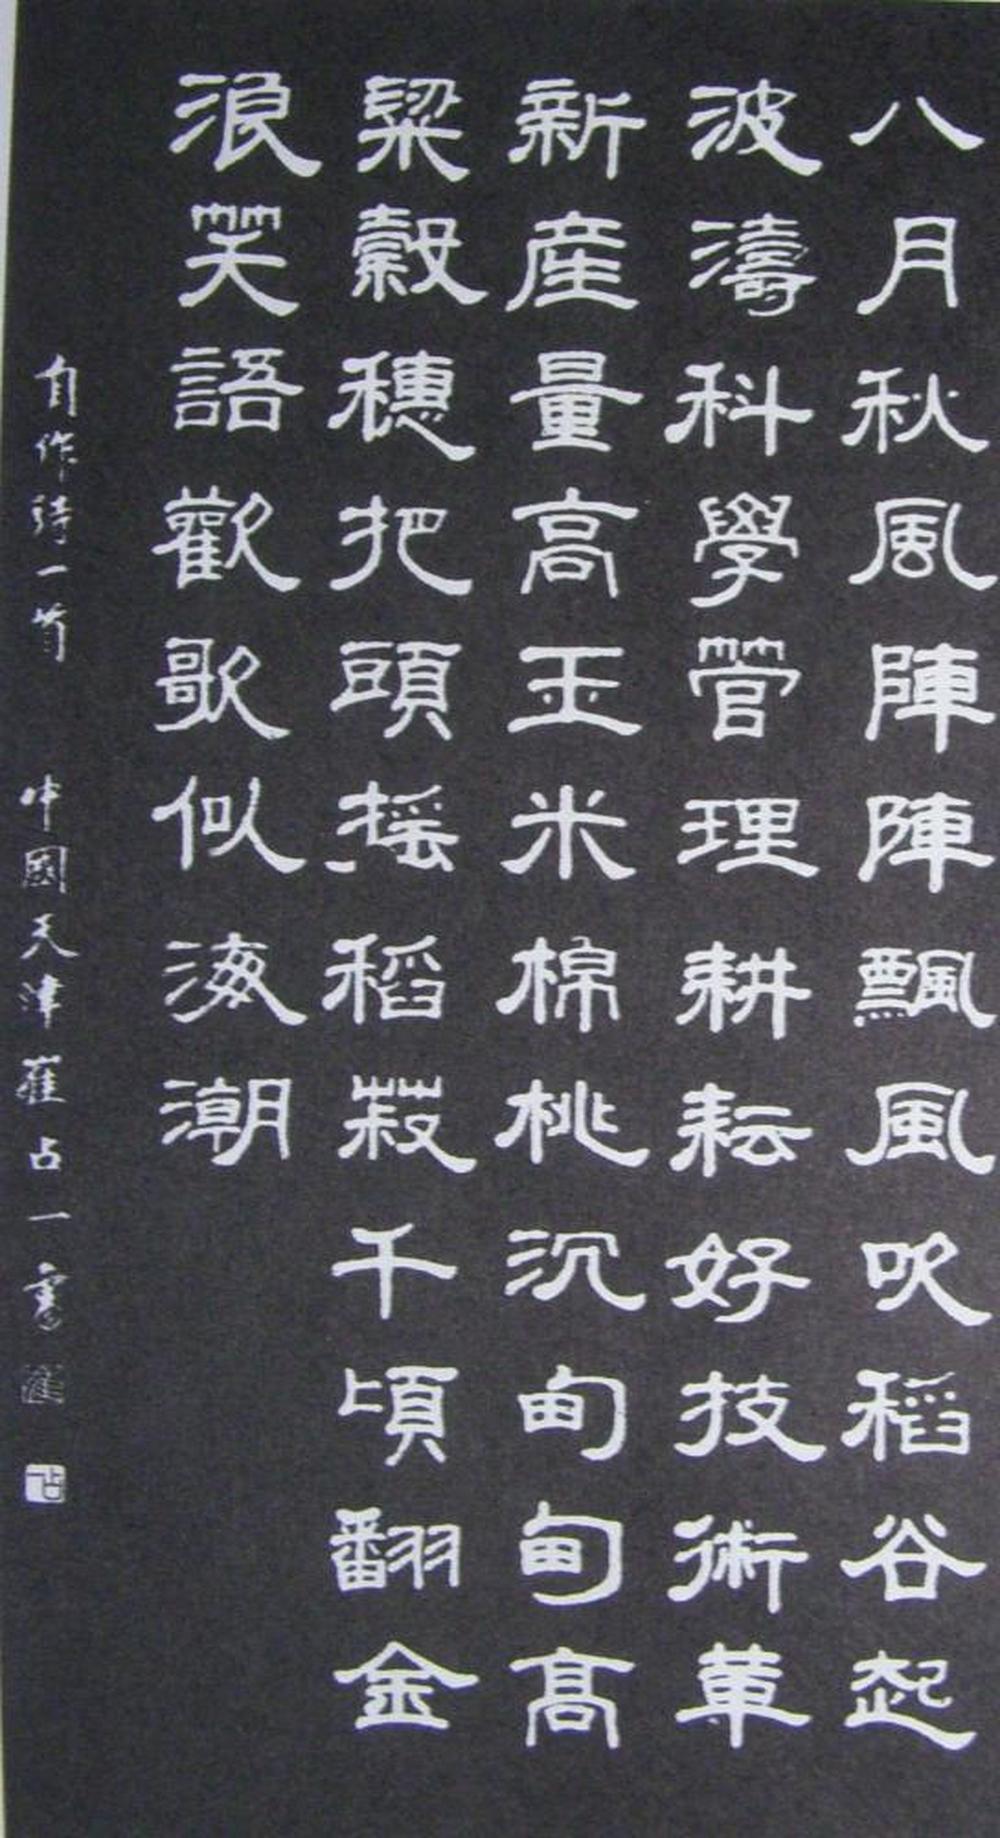 八月秋風陣陣飄風吹稻谷起
波濤科學管理耕耘好技術革
新産量高玉米棉桃沉甸甸高
粱穀穗把頭搖稻菽千頃翻金
浪笑語歡歌似海潮
自作詩一首 中國天津崔占一書